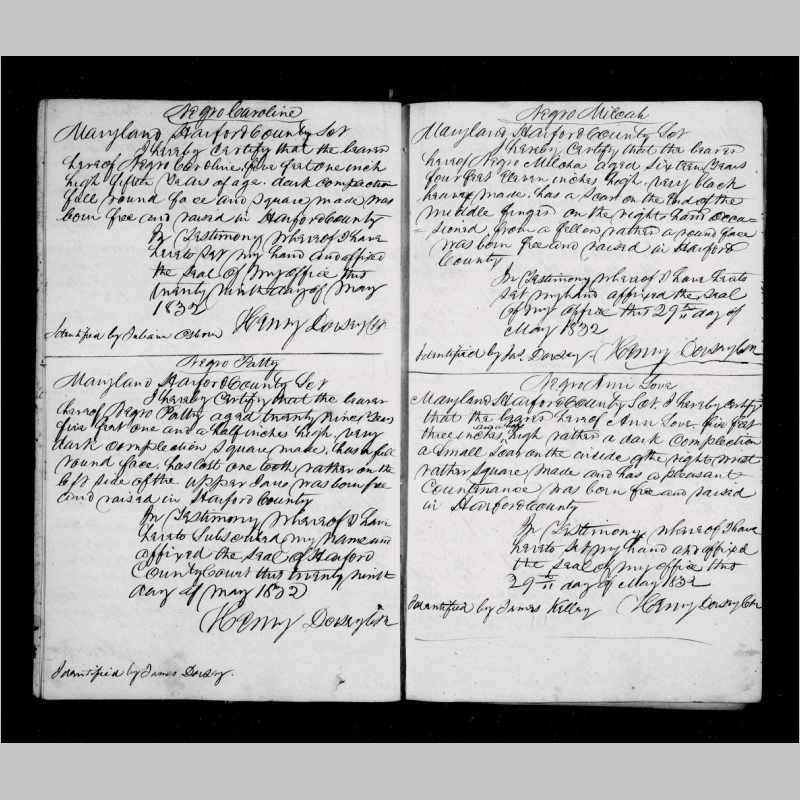 Negro Caroline
Maryland, Harford County Sct
I hereby certify that the bearer
hereof Negro Caroline, five feet one inch
high fifteen years of age. dark complection
full round face and square made, was
born free and raised in Harford County
In Testimony whereof I have
hereto set my hand and affixed
the seal of my office this
twenty ninth day of May
1832
Identified by Juliann Osborn Henry Dorsey Clk
Negro Patty
Maryland Harford County Sct
I hereby certify that the bearer
hereof Negro Patty aged twenty nine years
five feet one and a half inches high, very
dark complection square made, has a full
round face, has lost one tooth rather on the
left side of the upper Jaw was born free
and raised in Harford County
In Testimony whereof I have
hereto subscribed my name and
affixed the seal of Harford
County Court this twenty ninth
day of May 1832
Henry Dorsey Clk
Identified by James Dorsey.
Negro Milcah
Maryland Harford County Sct
I hereby certify that the bearer
hereof Negro Milcha aged sixteen years
four feet eleven inches high. very black
heavy made. has a scar on the end of the
middle finger on the right hand occa-
-sioned from a fellon rather a round face
was born free and raised in Harford
County
In Testimony whereof I have hereto
set my hand affixed the seal
of my office this 29th day of
May 1832
Identified by Jas. Dorsey. Henry Dorsey Clk
Negro Ann Love
Maryland Harford County Sct. I hereby certify
that the bearer hereof Ann Love five feet
three inches high rather a dark complection
a small scar on the inside of the right wrist
rather square made and has a pleasant
Countinance was born free and raised
in Harford County
In Testimony whereof I have
hereto set my hand and affixed
the seal of my office this
29th day of May 1832
Identified by James Kelley Henry Dorsey Clk